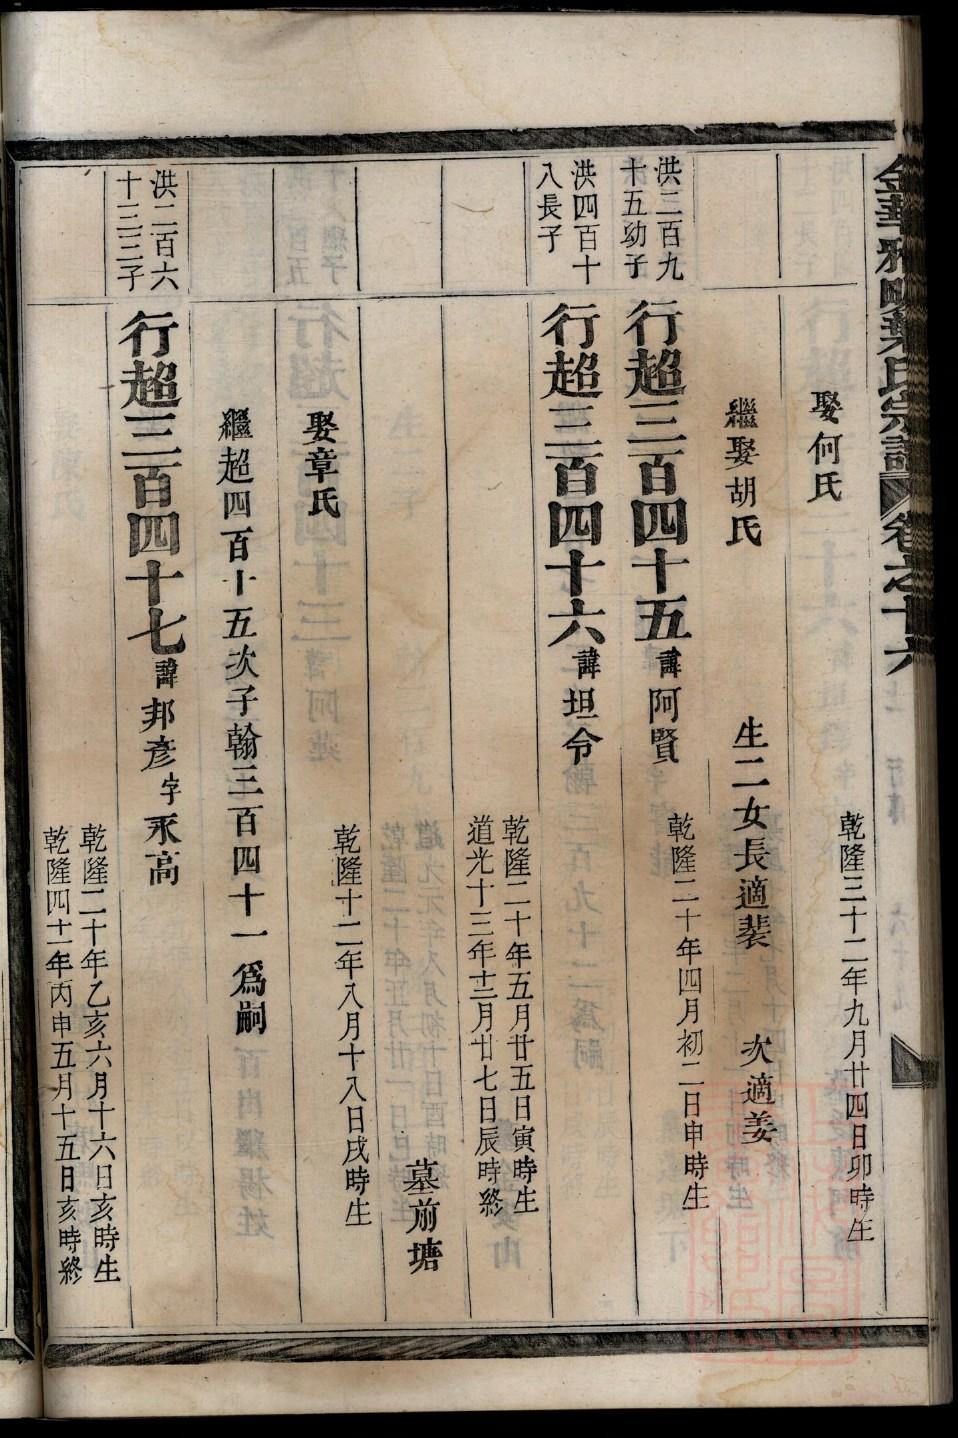 金華雅畈葉氏宗譜 卷之十六
娶何氏
乾隆三十二年九月廿四日卯時生
繼娶胡氏
生二女長適裴 次適姜
洪三百九
十五幼子
行超三百四十五 諱阿賢
乾隆二十年四月初二日申時生
洪四百十
八長子
行超三百四十六 諱坦令
乾隆二十年五月廿五日寅時生
道光十三年十二月廿七日辰時終
墓前塘
娶章氏
乾隆十二年八月十八日戌時生
繼超四百十五次子翰三百四十一爲嗣
洪二百六
十三三子
行超三百四十七 諱邦彥 字永高
乾隆二十年乙亥六月十六日亥時生
乾隆四十一年丙申五月十五日亥時終